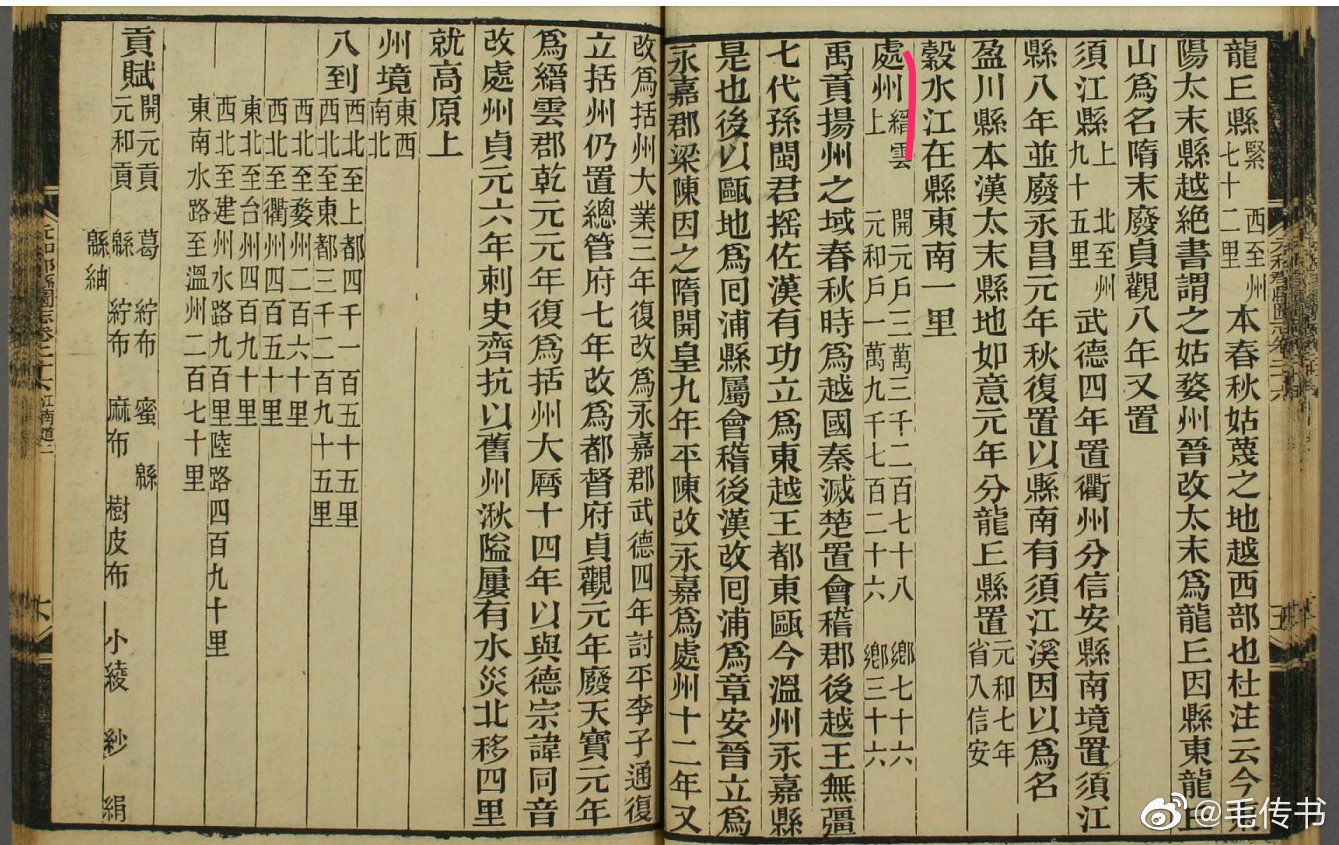 龍𠀌縣緊 西至州
七十二里 本春秋姑蔑之地越西部也杜注云今東
陽太末縣越絶書謂之姑婺州晉改太末爲龍𠀌因縣東龍𠀌
山爲名隋末廢貞觀八年又置
須江縣上 北至州
九十五里 武德四年置衢州分信安縣南境置須江
縣八年並廢永昌元年秋復置以縣南有須江溪因以爲名
盈川縣本漢太末縣地如意元年分龍𠀌縣置元和七年
省入信安
穀水江在縣東南一里
處州縉雲 開元戸三萬三千二百七十八 鄉七十六
上 元和戸一萬九千七百二十六 鄉三十六
禹貢揚州之域春秋時爲越國秦滅楚置會稽郡後越王無彊
七代孫閩君揺佐漢有功立爲東越王都東甌今溫州永嘉縣
是也後以甌地爲囘浦縣屬會稽後漢改囘浦爲章安晉立爲
永嘉郡梁陳因之隋開皇九年平陳改永嘉爲處州十二年又
改爲括州大業三年復改爲永嘉郡武德四年討平李子通復
立括州仍置總管府七年改爲都督府貞觀元年廢天寶元年
爲縉雲郡乾元元年復爲括州大曆十四年以與德宗諱同音
改處州貞元六年刺史齊抗以舊州湫隘屢有水災北移四里
就高原上
州境東西
南北
八到西北至上都四千一百五十五里
西北至東都三千二百九十五里
西北至婺州二百六十里
西北至衢州四百五十里
東北至台州四百九十里
西北至建州水路九百里陸路四百九十里
東南水路至溫州二百七十里
貢賦開元貢 葛 紵布 蜜 緜
元和貢 緜 紵布 麻布 樹皮布 小綾 紗 絹
緜紬
江南道二
@毛传书